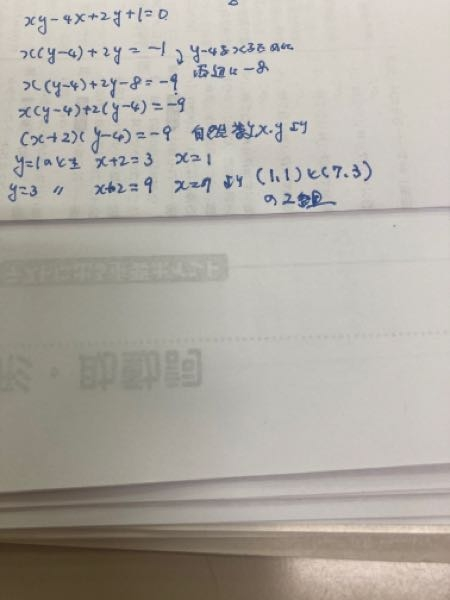 xy-4x+2y+1=0
x(y-4)+2y=-1 y-4を×るために
両辺に-8
x(y-4)+2y-8=-9
x(y-4)+2(y-4)=-9
(x+2)(y-4)=-9 自然数x,yより
y=1のとき x+2=3 x=1
y=3 〃 x+2=9 x=7 より (1,1)と(7,3)
の2組
助動詞